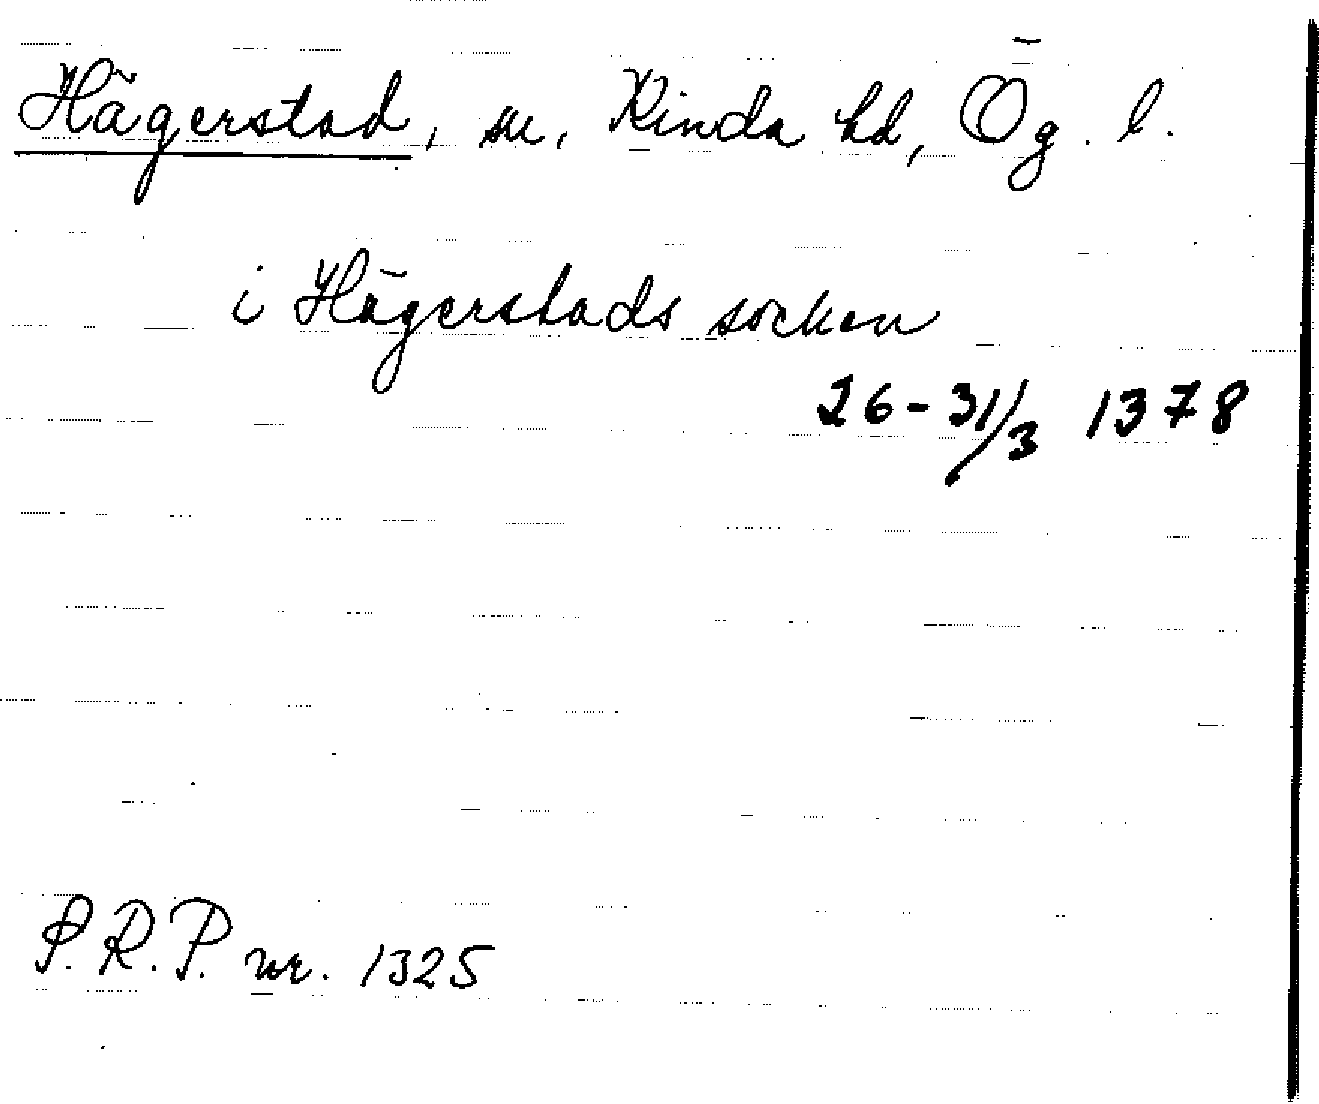 Hägerstad, sn, Kinda hd, Ög. l.
i Hägerstads socken
26-31/3 1378
S.R.P. nr. 1325